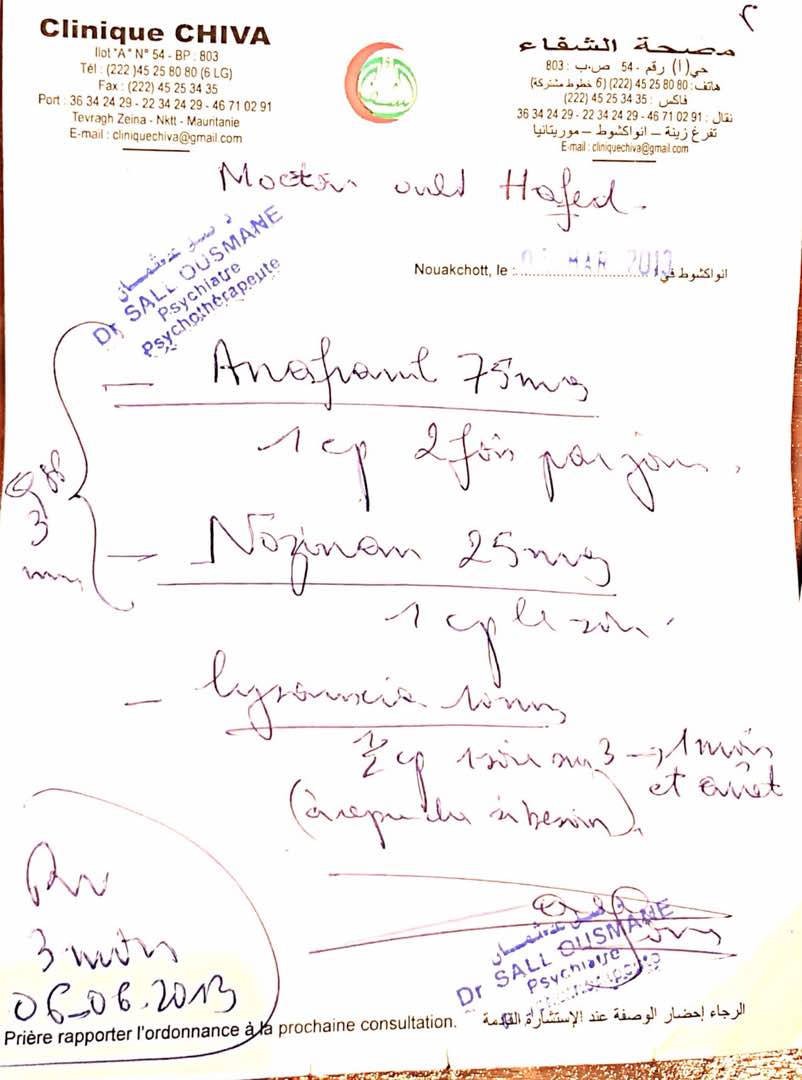 Clinique CHIVA
Ilot "A" N° 54 - BP : 803
Tél : (222 )45 25 80 80 (6 LG)
Fax : (222) 45 25 34 35
Port : 36 34 24 29 - 22 34 24 29 - 46 71 02 91
Tevragh Zeina - Nktt - Mauritanie
E-mail : cliniquechiva@gmail.com
مصحة الشفاء
حي(أ) رقم - 54 ص.ب : 803
هاتف : 80 80 25 45 (222) (6 خطوط مشتركة)
فاكس : 35 34 25 45 (222)
نقال : 91 02 71 46 - 29 24 34 22 - 29 24 34 36
تفرغ زينة – انواكشوط – موريتانيا
E-mail : cliniquechiva@gmail.com
Moctar ould Hafed.
Nouakchott, le : MAR 2013 انواكشوط في
Dr SALL OUSMANE
Psychiatre
Psychothérapeute
- Anafranil 75mg
1 cp 2 fois par jour.
3
- Nozinan 25mg
1 cp le soir.
- Lysanxia 10mg
1/2 cp 1 soir sur 3 → 1 mois
et arrêt
(à reprendre si besoin).
RV
3 mois
06-06-2013
Dr SALL OUSMANE
Psychiatre
Prière rapporter l'ordonnance à la prochaine consultation. الرجاء إحضار الوصفة عند الإستشارة القادمة